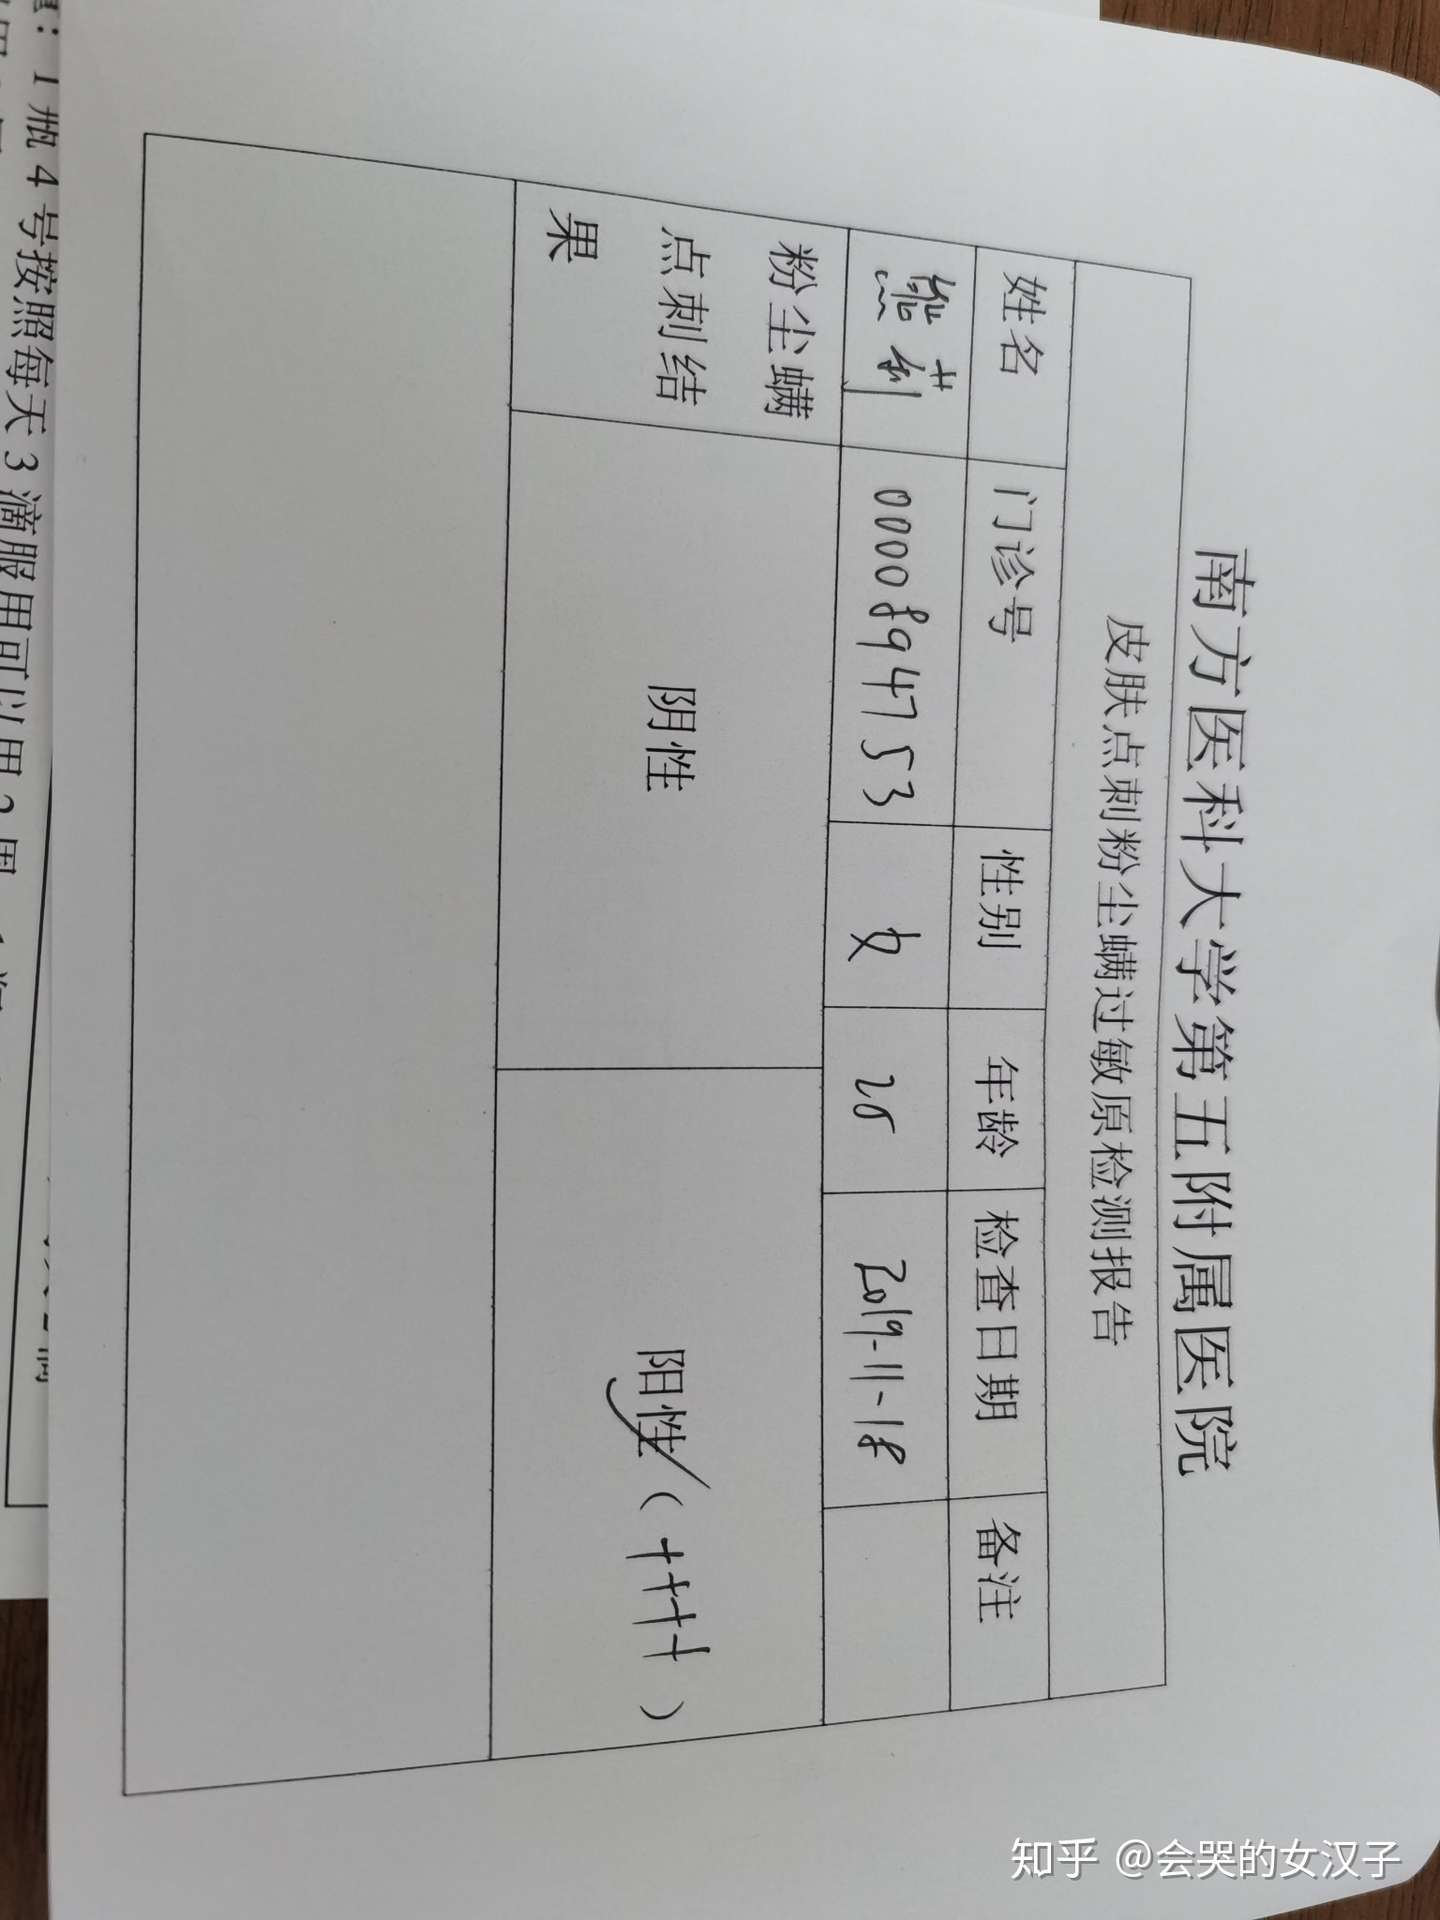 南方医科大学第五附属医院
皮肤点刺粉尘螨过敏原检测报告
姓名 门诊号 性别 年龄 检查日期 备注
熊莉 0000894753 女 25 2019-11-18
粉尘螨
点刺结
果
阴性 阳性（+++）
1瓶4号按照每天3滴服用可以用2周
知乎 @会哭的女汉子